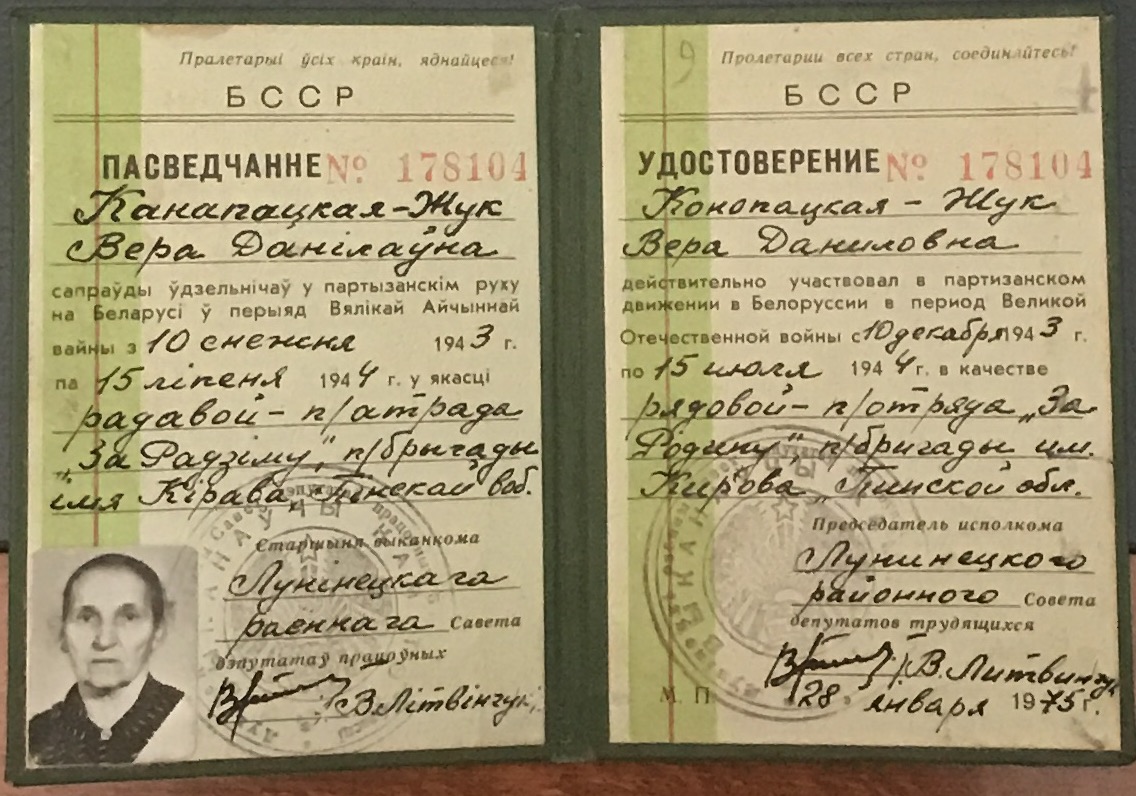 Пралетарыі ўсіх краін, яднайцеся!
БССР
ПАСВЕДЧАННЕ № 178104
Канапацкая-Жук
Вера Данілаўна
сапраўды ўдзельнічаў у партызанскім руху
на Беларусі ў перыяд Вялікай Айчыннай
вайны з 10 снежня 1943 г.
па 15 ліпеня 1944 г. у якасці
радавой - п/атрада
"За Радзіму", п/брыгады
імя Кірава, Пінскай воб.
Старшыня выканкома
Лунінецкага
раённага Савета
дэпутатаў працоўных
В. Літвінчук
9
Пролетарии всех стран, соединяйтесь!
БССР
УДОСТОВЕРЕНИЕ № 178104
Конопацкая - Жук
Вера Даниловна
действительно участвовал в партизанском
движении в Белоруссии в период Великой
Отечественной войны с 10 декабря 1943 г.
по 15 июля 1944 г. в качестве
рядовой - п/отряда "За
Родину", п/бригады им.
Кирова, Пинской обл.
Председатель исполкома
Лунинецкого
районного Совета
депутатов трудящихся
В. Литвинчук
М. П. 28 января 1975 г.